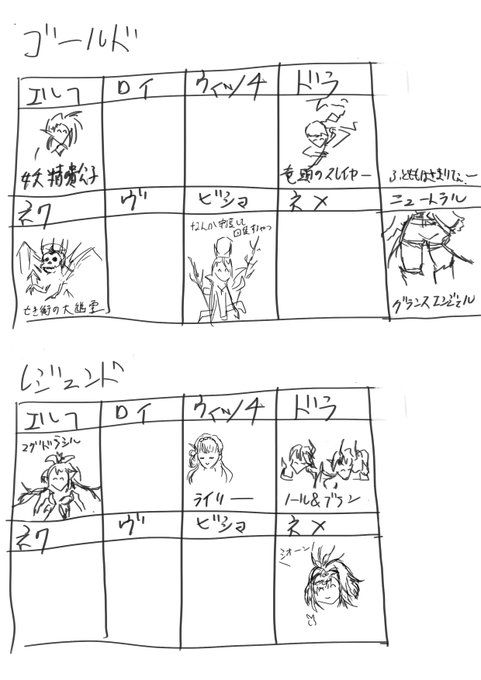 ゴールド
エルフ ロイ ウィッチ ドラ
妖精貴公子
竜頭のスレイヤー
ネク ヴ ビショ ネメ ニュートラル
なんか何度も
亡き街の大総霊
グランスエンジェル
レジェンド
エルフ ロイ ウィッチ ドラ
ユグドラシル
ライリー
ノール&ブラン
ネク ヴ ビショ ネメ
シオーン